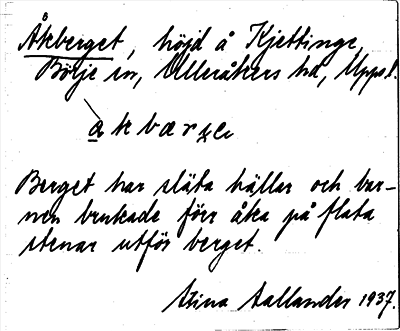 Åkberget, höjd å Kjettinge,
Börje sn, Ulleråkers hd, Upps l.
Berget har släta hällar och bar-
nen brukade förr åka på flata
stenar utför berget.
Stina Sallander 1937.